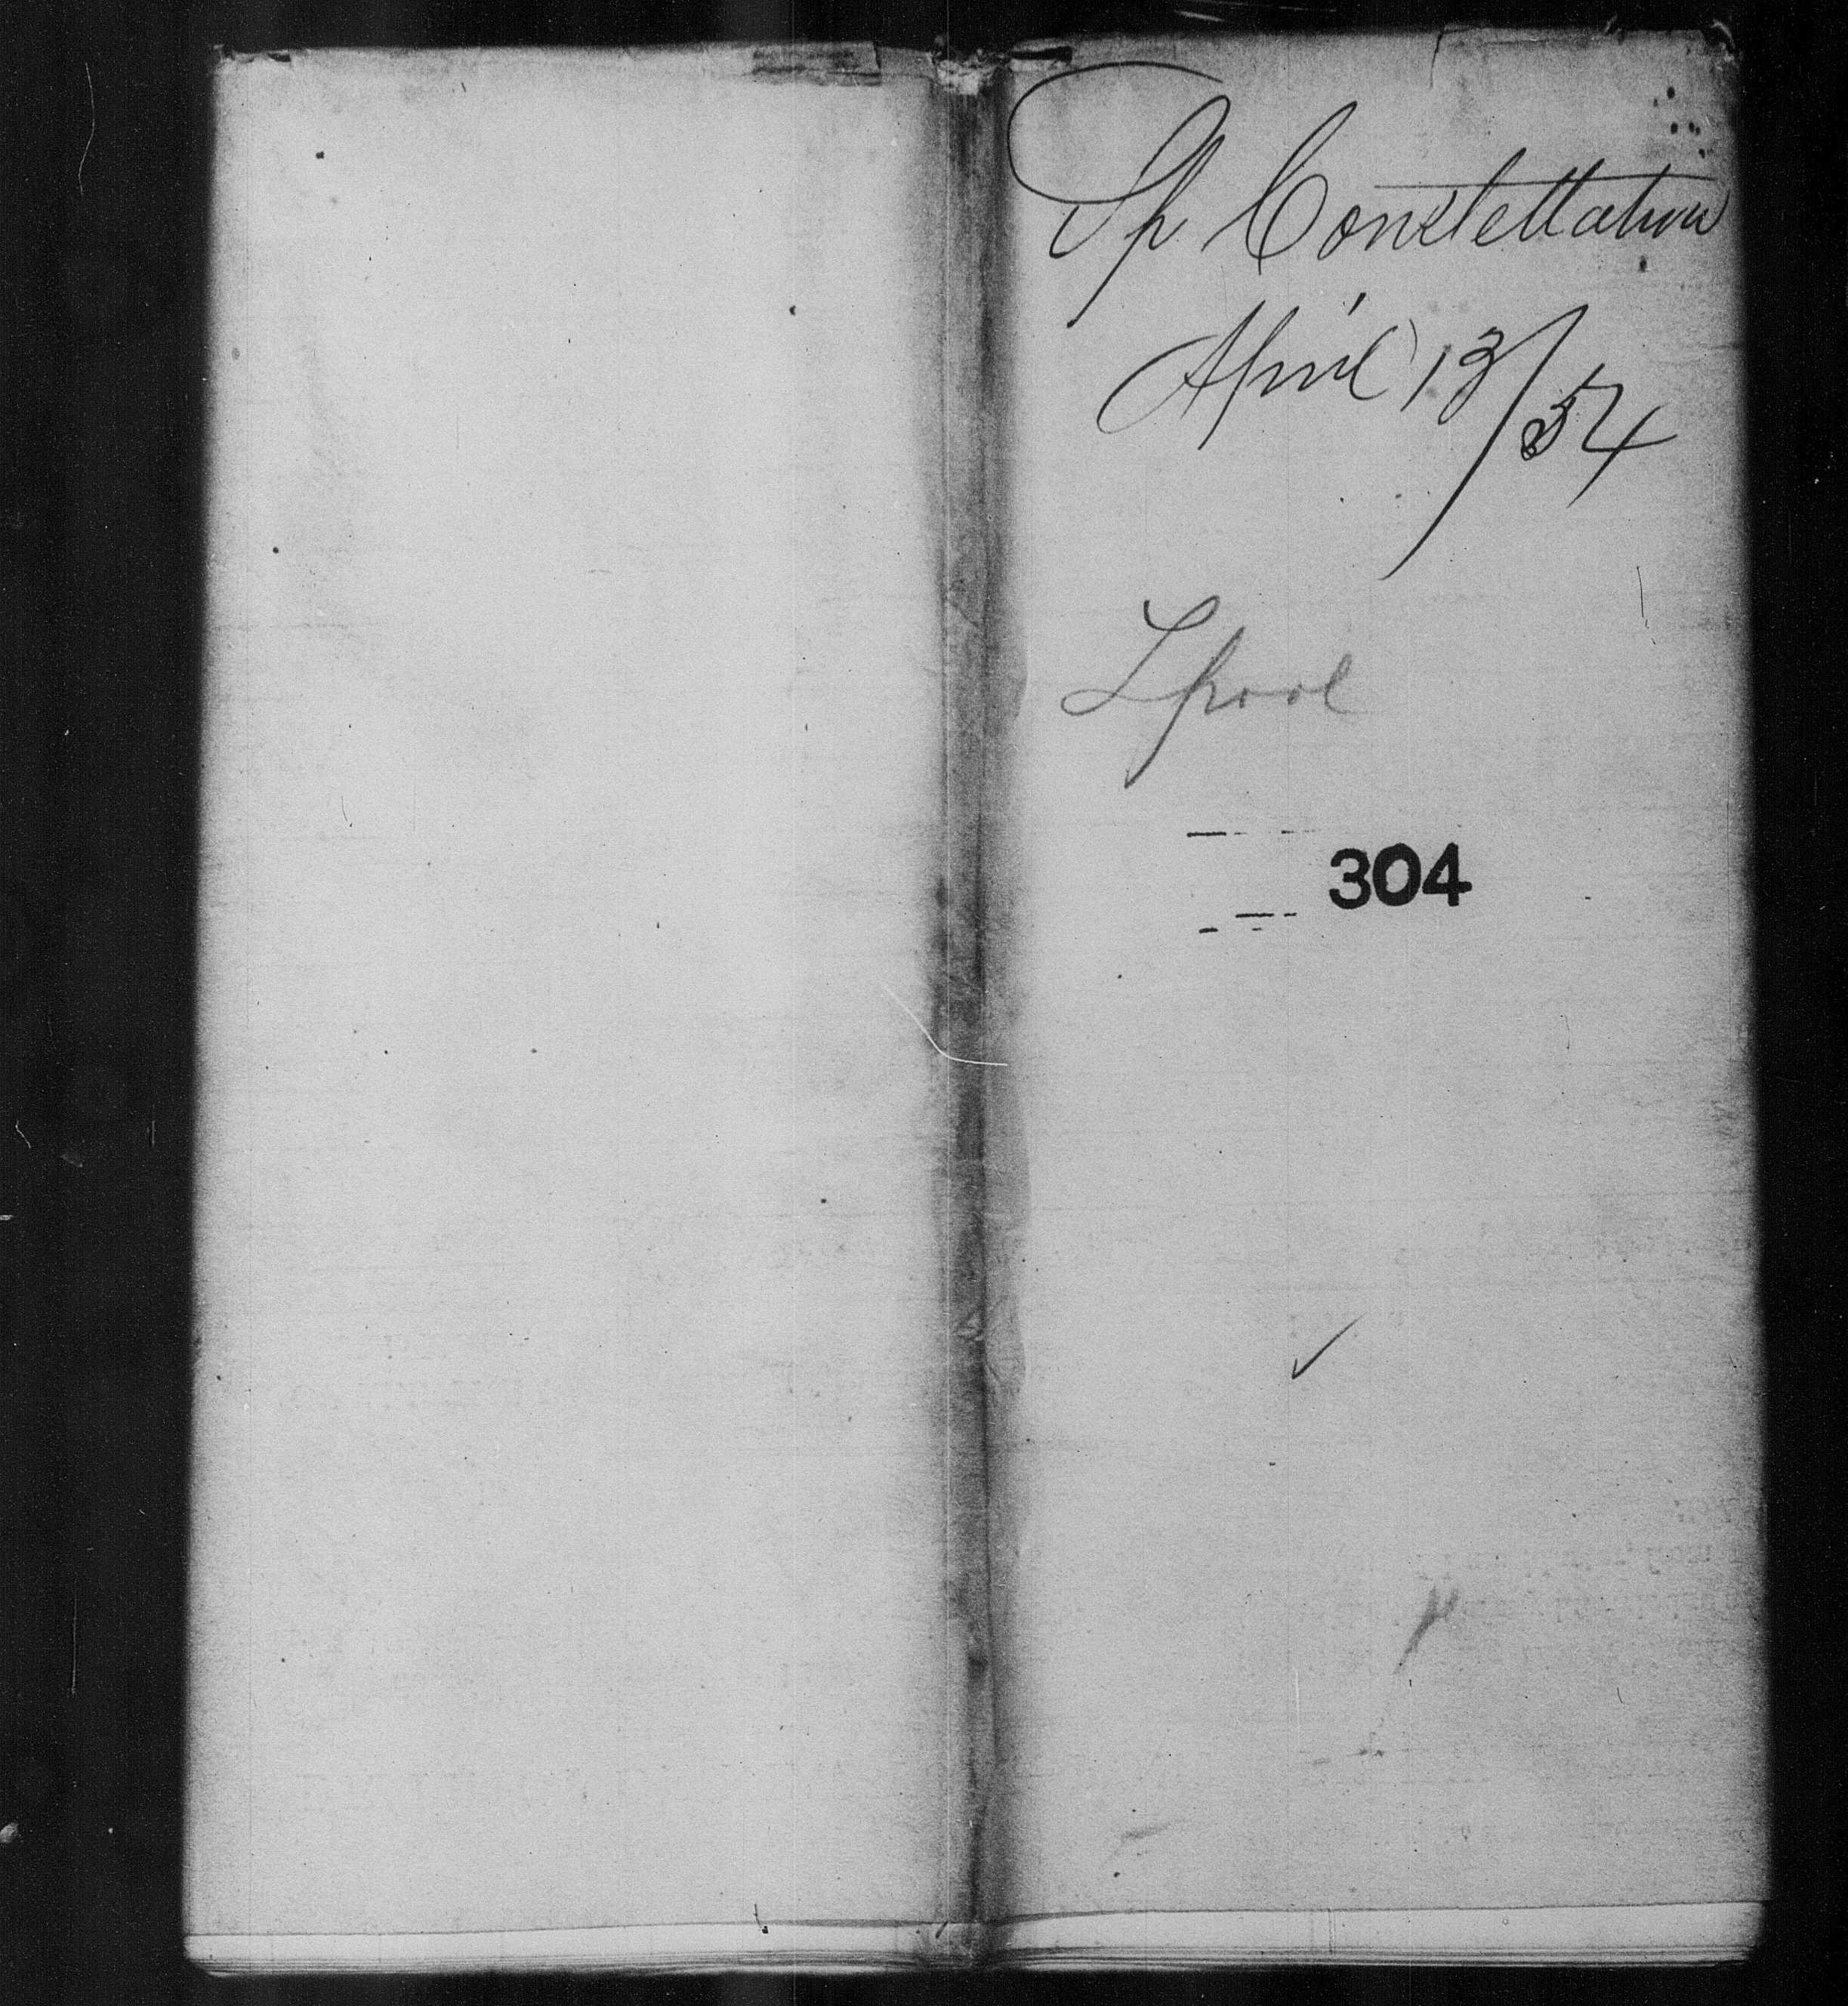 Sp Constellation
April 13/54
Lpool
304